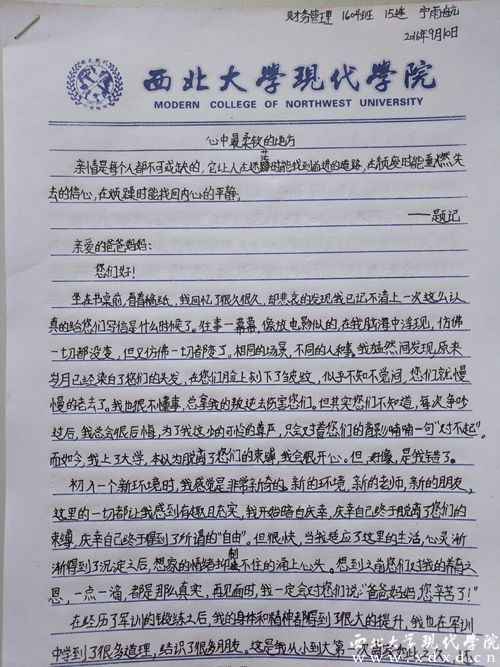 财务管理 1604班 15连 宁雨航
2016年9月10日
西北大学現代学院
MODERN COLLEGE OF NORTHWEST UNIVERSITY
心中最柔软的地方
亲情是每个人都不可或缺的,它让人在迷茫时能找到前进的道路,在颓废时能重燃失
去的信心,在烦躁时能找回内心的平静。
——题记
亲爱的爸爸妈妈:
您们好!
坐在书桌前,看着稿纸,我回忆了很久很久,却悲哀的发现我已记不清上一次这么认
真的给您们写信是什么时候了。往事一幕幕,像放电影似的,在我脑海中浮现,仿佛
一切都没变,但又仿佛一切都变了,相同的场景,不同的人和事。我猛然间发现,原来
岁月已经染白了您们的头发,在您们脸上刻下了皱纹,似乎不知不觉间,您们就慢
慢的老去了。我也很不懂事,总拿我的叛逆去伤害您们。但其实您们不知道,每次争吵
过后,我总会很后悔,为了我这少的可怜的尊严,只会对着您们的背影喃喃一句“对不起”。
而如今,我上了大学,本以为脱离了您们的束缚,我会很开心。但,好像,是我错了。
初入一个新环境时,我感觉是非常新奇的。新的环境,新的老师,新的朋友,
这里的一切都让我感到有趣且充实,我开始暗自庆幸,庆幸自己终于脱离了您们的
束缚,庆幸自己终于得到了所谓的“自由”。但很快,当我适应了这里的生活,心灵渐
渐得到了沉淀之后,想家的情绪抑制不住的涌上心头。想到之前您们对我的养育之
恩,一点一滴,都是那么真实,再见面时,我一定会对您们说:“爸爸妈妈,您辛苦了!”
在经历了军训的锻练之后,我的身体和精神都得到了很大的提升,我也在军训
中学到了很多道理,结识了很多朋友。这是我从小到大第一次离家如此之久
西北大学现代学院